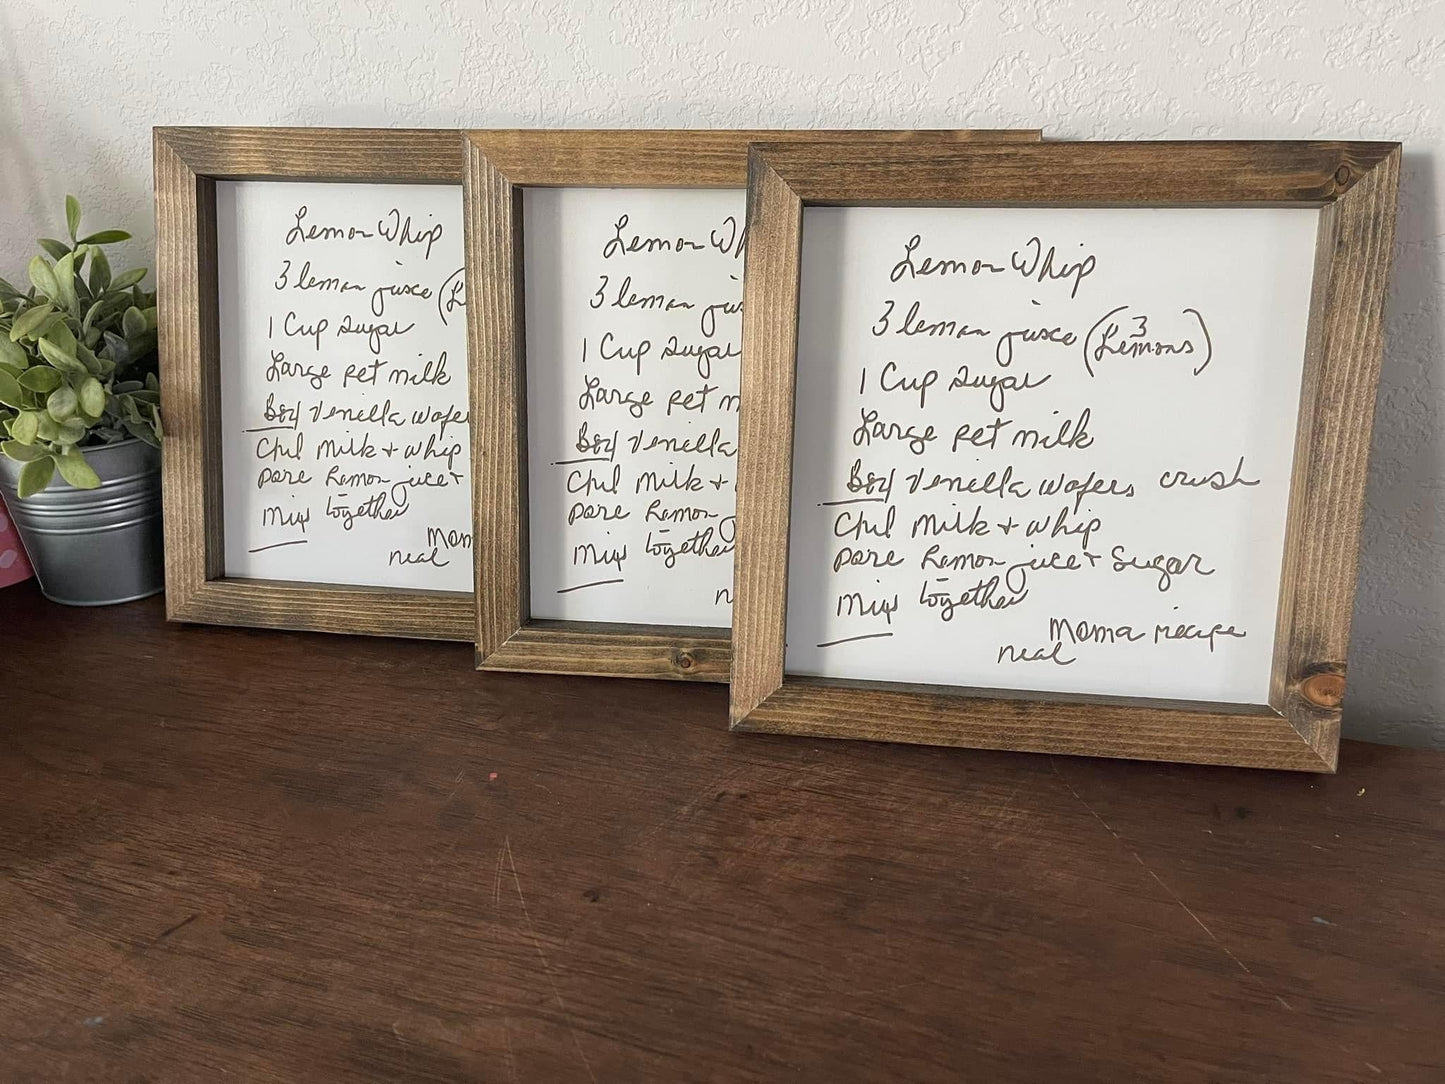 Lemon Whip
3 lemon juice (L
1 Cup sugar
Large pet milk
Box Venella wafers
Chil Milk + whip
pore Lemon juce +
Mix together
Mom
neal
Lemon Wh
3 lemon jui
1 Cup sugar
Large pet m
Box Venella
Chil Milk +
pore Lemon
Mix together
n
Lemon Whip
3 lemon juice (3 Lemons)
1 Cup sugar
Large pet milk
Box Venella wafers crush
Chil Milk + whip
pore Lemon juce + Sugar
Mix together
Moma recipe
neal